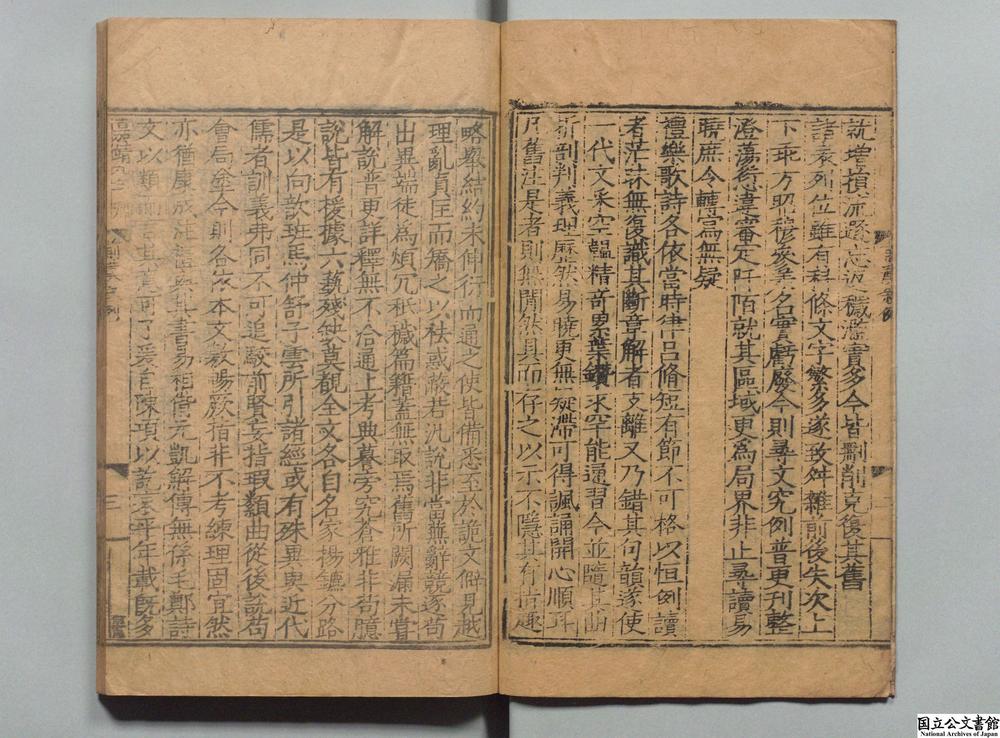 就增損流遯忘返穢濫實多今皆刪削克復其舊
諸表列位雖有科條文字繁多遂致舛雜前後失次上
下乖方昭穆參差名實虧廢今則尋文究例普更刊整
澄蕩愆違審定阡陌就其區域更為局界非止尋讀易
曉庶令轉寫無疑
禮樂歌詩各依當時律呂脩短有節不可格以恒例讀
者茫昧無復識其斷章解者支離又乃錯其句韻遂使
一代文采空韞精奇累葉鑽求罕能通習今並隨其曲
折剖判義理歷然易曉更無疑滯可得諷誦開心順耳
凡舊注是者則無間然具而存之以示不隱其有指趣
略舉結約未伸衍而通之使皆備悉至於詭文僻見越
理亂真匡而矯之以袪惑蔽若汎說非當蕪辭競逐苟
出異端徒為煩冗秪穢篇籍蓋無取焉舊所闕漏未嘗
解說普更詳釋無不洽通上考典謩旁究蒼雅非苟臆
說皆有援據六蓺殘缺莫覩全文各自名家揚鑣分路
是以向歆班馬仲舒子雲所引諸經或有殊異與近代
儒者訓義弗同不可追駮前賢妄指瑕纇曲從後說苟
會扃塗今則各依本文敷暢厥指非不考練理固宜然
亦猶康成注禮與其書易相偝元凱解傳無係毛鄭詩
文以類而言其意可了爰自陳項以訖哀平年載既多
三
國立公文書館
National Archives of Japan